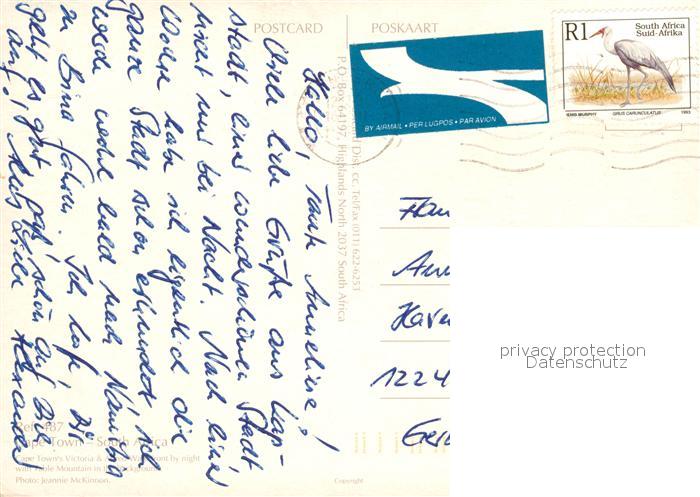 POSTCARD
POSKAART
Hallo, Tante Anneliese!
Viele liebe Grüße aus Cap-
stadt, einer wunderschönen Stadt
mitten und bei Nacht. Nach einer
Woche habe ich eigentlich die
ganze Stadt schon erkundet. Ich
werde wohl bald nach Namibia
zu Bina fahren. Ich hoffe, Dir
geht es gut, paß' schön auf Dich
auf! Alles Liebe Alexander
P.O. Box 64197, Highlands North 2037 South Africa
Dist. cc. Tel/Fax (011) 622-6253
BY AIRMAIL • PER LUGPOS • PAR AVION
R1
South Africa
Suid-Afrika
DENIS MURPHY
GRUS CARUNCULATUS
1993
Frau
Ann
Have
1224
Ger
privacy protection
Datenschutz
Ref. 487
Cape Town – South Africa
Cape Town's Victoria & Alfred Waterfront by night
with Table Mountain in the background
Photo: Jeannie McKinnon.
Copyright